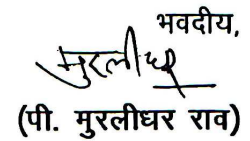 भवदीय,
मुरलीधर
(पी. मुरलीधर राव)